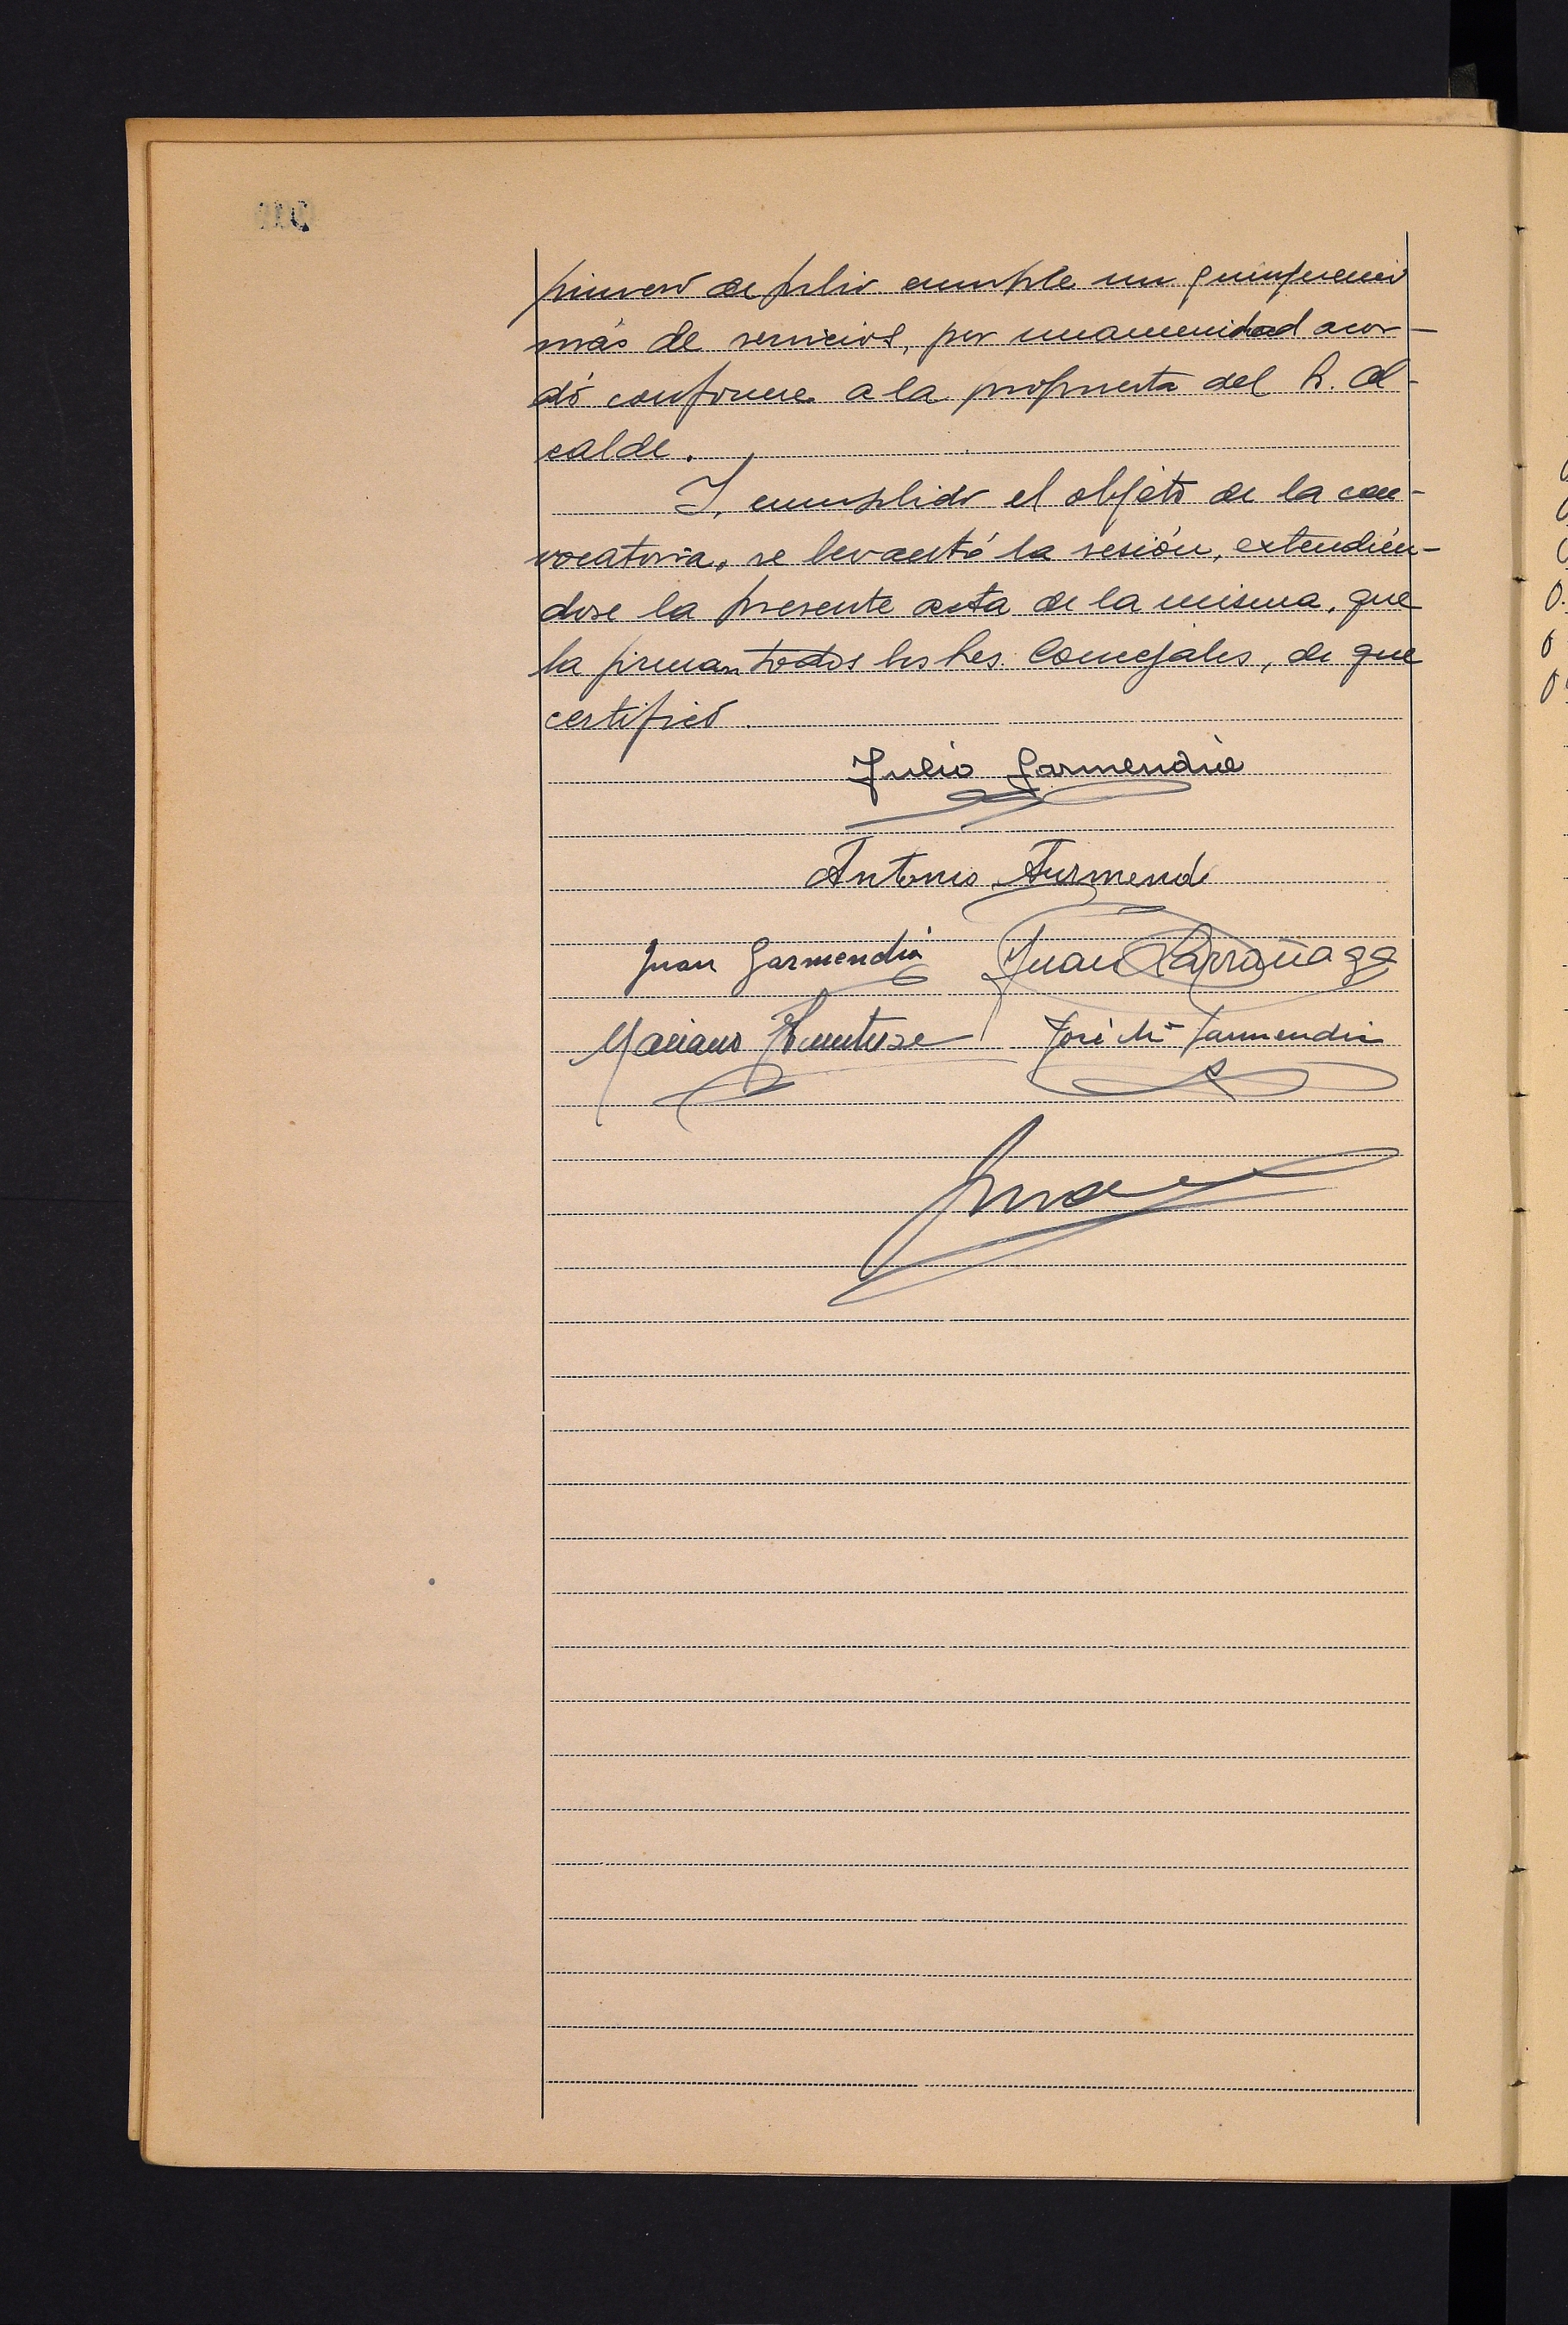 primero de julio cumple un quinquenio
más de servicios, por unanimidad acor-
dó conforme a la propuesta del Sr. Al-
calde.
Y, cumplido el objeto de la con-
vocatoria, se levantó la sesión, extendién-
dose la presente acta de la misma, que
la firman todos los Sres. Concejales, de que
certifico.
Julio Garmendia
Antonio Aurmendi
Juan Garmendia Juan Larrañaga
Mariano José Mª Garmendia